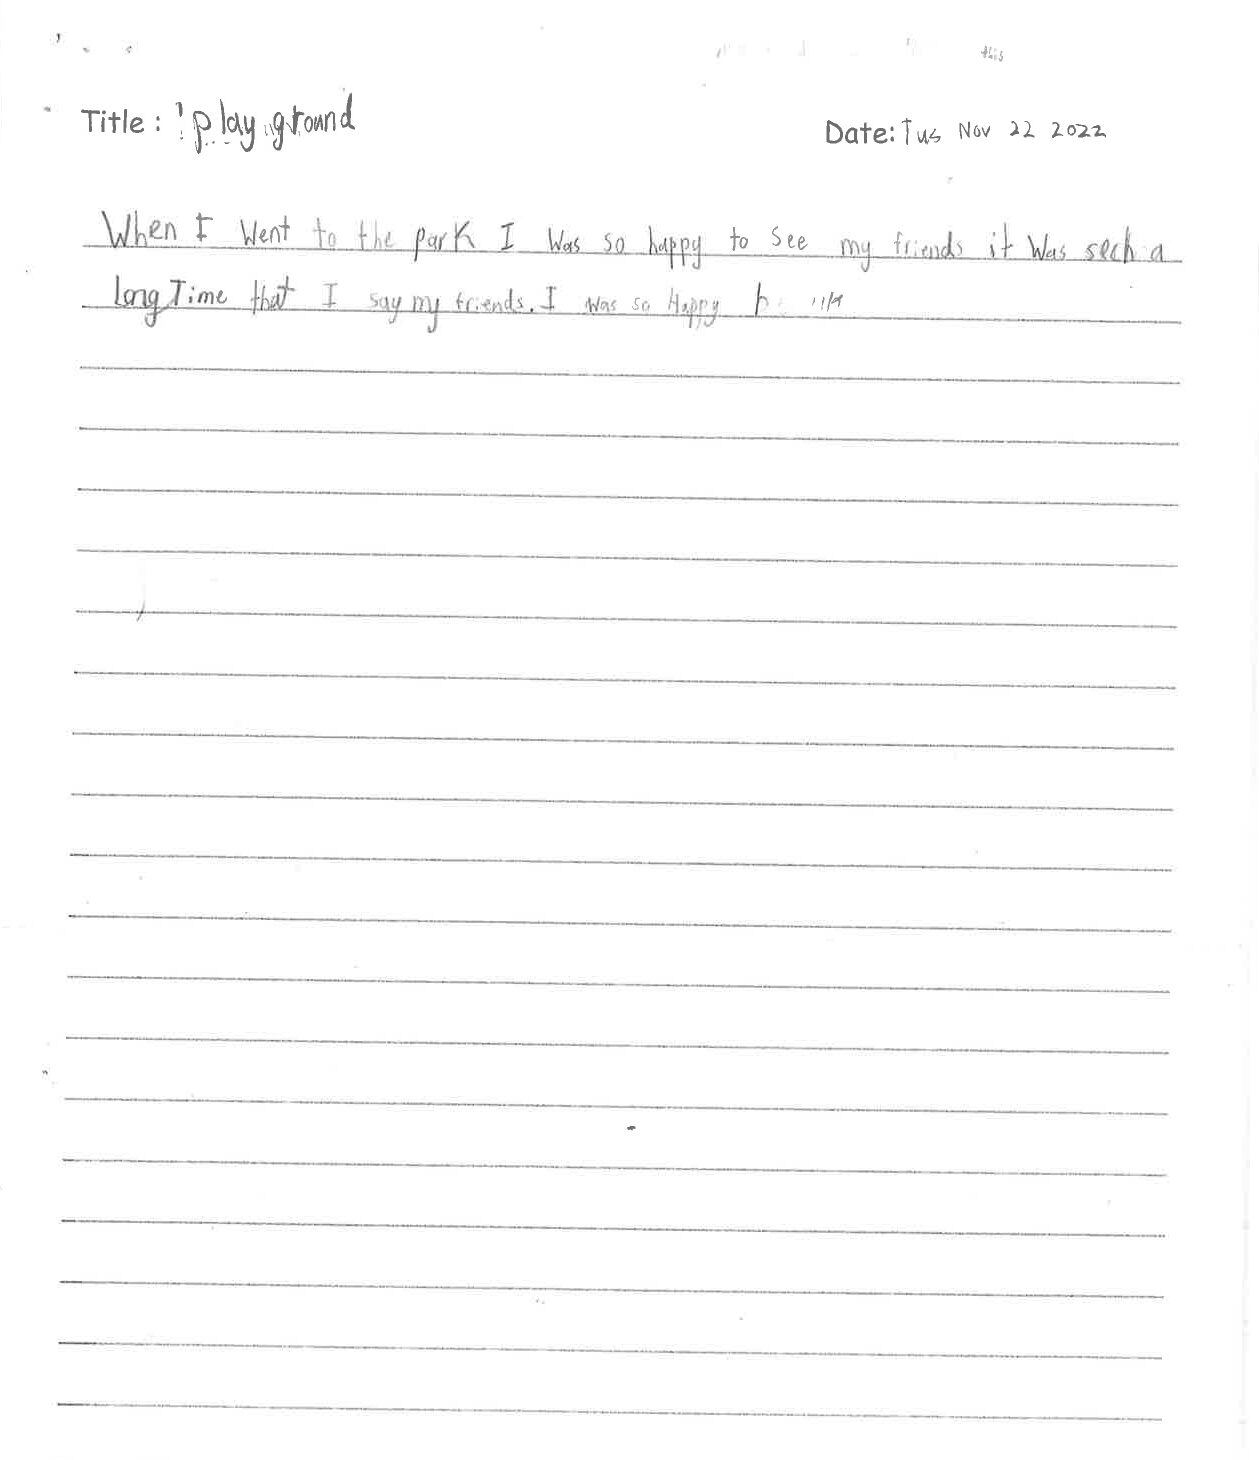 this
Title: play ground
Date: Tus Nov 22 2022
When I Went to the park I Was so happy to see my friends it Was sech a
long Time that I say my friends. I was so Happy